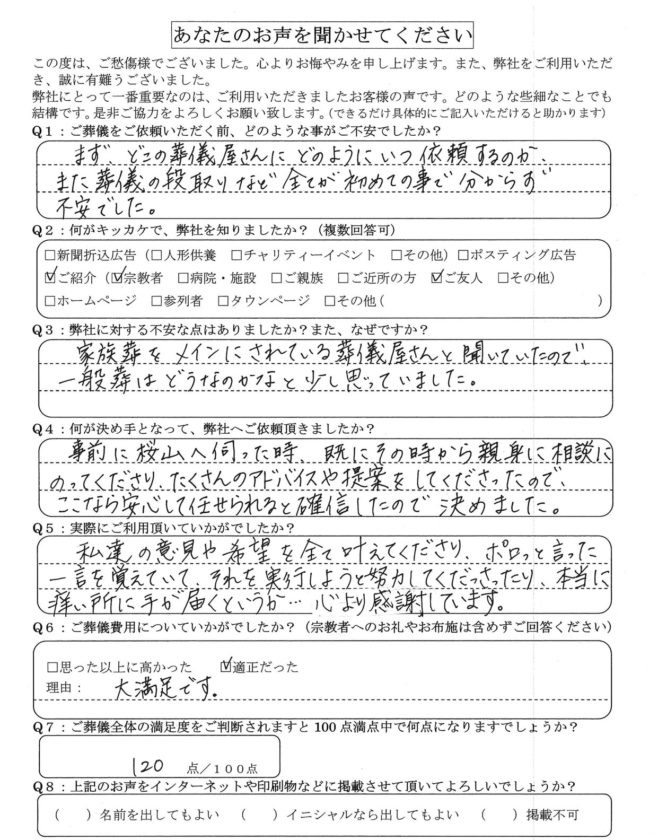 あなたのお声を聞かせてください
この度は、ご愁傷様でございました。心よりお悔やみを申し上げます。また、弊社をご利用いただ
き、誠に有難うございました。
弊社にとって一番重要なのは、ご利用いただきましたお客様の声です。どのような些細なことでも
結構です。是非ご協力をよろしくお願い致します。(できるだけ具体的にご記入いただけると助かります)
Q1：ご葬儀をご依頼いただく前、どのような事がご不安でしたか？
まず、どこの葬儀屋さんにどのようにいつ依頼するのか、
また葬儀の段取りなど全てが初めての事で分からず
不安でした。
Q2：何がキッカケで、弊社を知りましたか？（複数回答可）
□新聞折込広告（□人形供養 □チャリティーイベント □その他）□ポスティング広告
☑ご紹介（☑宗教者 □病院・施設 □ご親族 □ご近所の方 ☑ご友人 □その他）
□ホームページ □参列者 □タウンページ □その他（ ）
Q3：弊社に対する不安な点はありましたか？また、なぜですか？
家族葬をメインにされている葬儀屋さんと聞いていたので、
一般葬はどうなのかなと少し思っていました。
Q4：何が決め手となって、弊社へご依頼頂きましたか？
事前に桜山へ伺った時、既にその時から親身に相談に
のってくださり、たくさんのアドバイスや提案をしてくださったので、
ここなら安心して任せられると確信したので決めました。
Q5：実際にご利用頂いていかがでしたか？
私達の意見や希望を全て叶えてくださり、ポロっと言った
一言を覚えていて、それを実行しようと努力してくだっさったり、本当に
痒い所に手が届くというか…心より感謝しています。
Q6：ご葬儀費用についていかがでしたか？（宗教者へのお礼やお布施は含めずご回答ください）
□思った以上に高かった ☑適正だった
理由： 大満足です。
Q7：ご葬儀全体の満足度をご判断されますと100点満点中で何点になりますでしょうか？
120 点／100点
Q8：上記のお声をインターネットや印刷物などに掲載させて頂いてよろしいでしょうか？
（ ）名前を出してもよい （ ）イニシャルなら出してもよい （ ）掲載不可